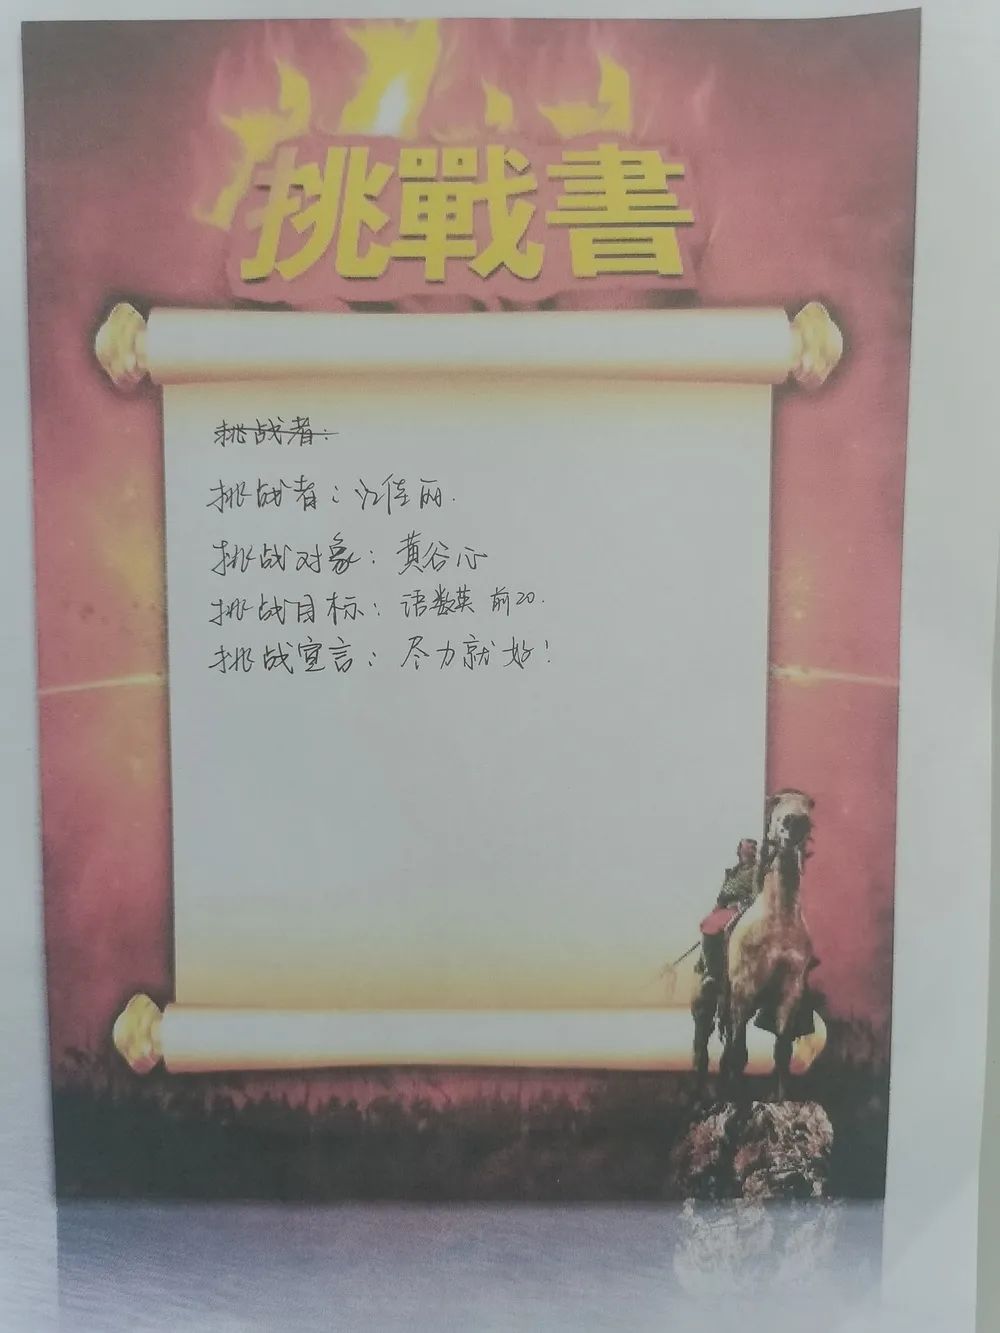 挑戰書
挑战者：
挑战者：江佳丽.
挑战对象：黄谷心
挑战目标：语数英 前20.
挑战宣言：尽力就好！